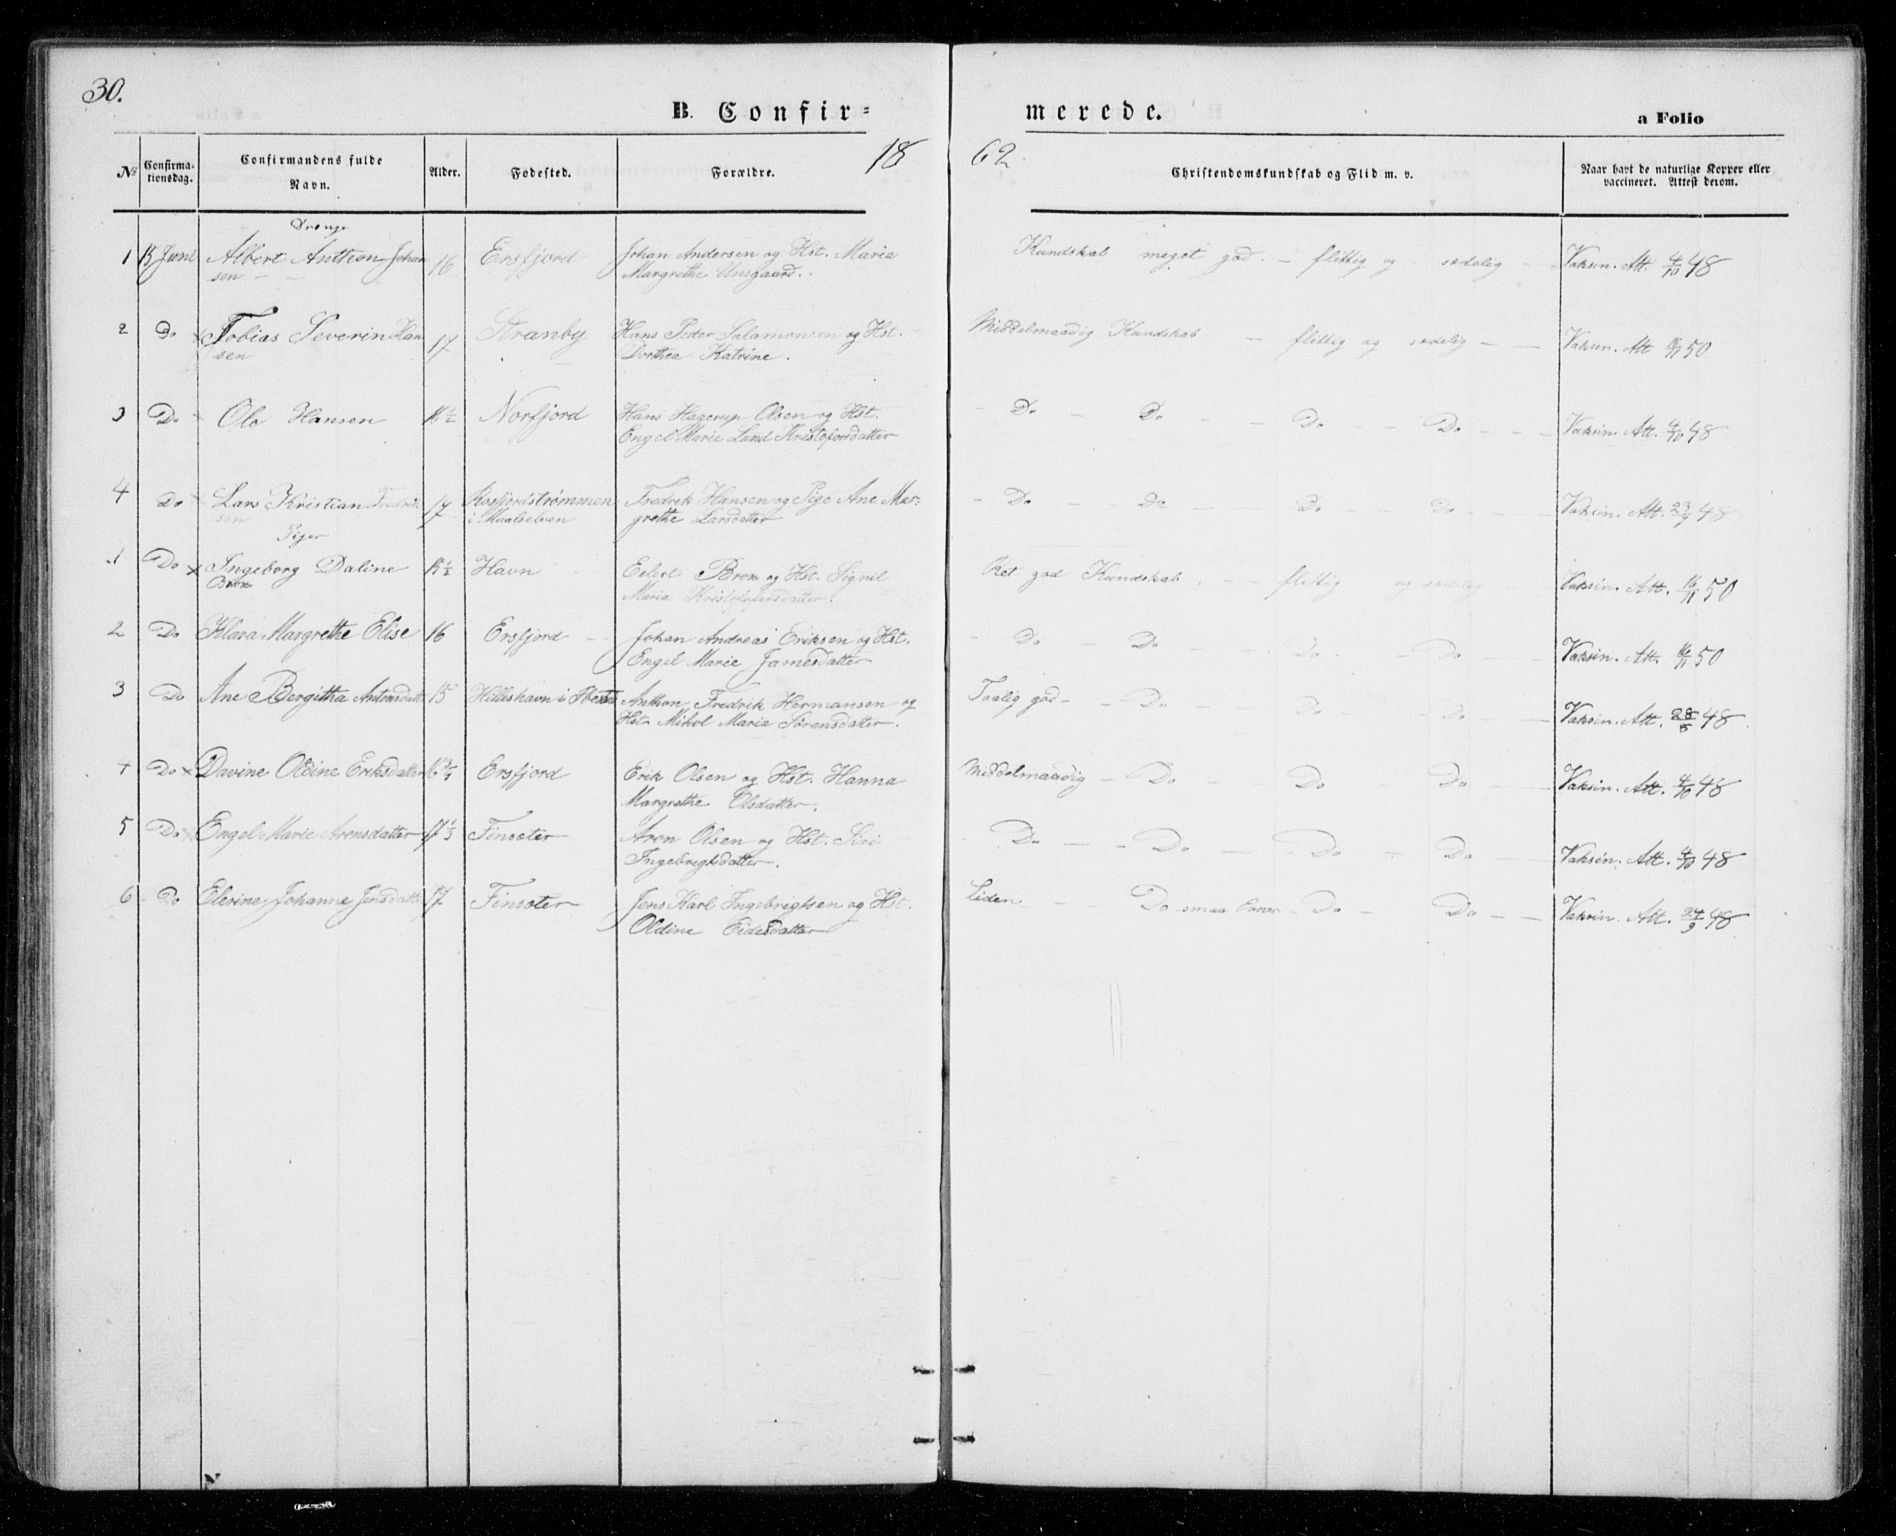 30.
B. Confir=
merede.
a Folio
18
62
No
Confirma-
tionsdag.
Confirmandens fulde
Navn.
Alder.
Fødested.
Forældre.
Christendomskundskab og Flid m. v.
Naar havt de naturlige Kopper eller
vaccineret. Attest derom.
Drenge
1 15 Juni Albert Anthon Johan 16 Ersfjord Johan Andersen og Hst. Maria Kundskab meget god. - flittig og sædelig - Vaksin. Att. 4/10 48
sen - - Margrethe Unsgaard.
2 Do Tobias Severin Han 17 Strønby Hans Peder Salamonsen og Hst. Middelmaadig Kundskab - flittig og sædelig - - Vaksin. Att 16/11 50
sen Dorthea Katrine.
3 Do Ole Hansen 1/2 Norfjord Hans Hagerup Olsen og Hst. - Do - Do - - Do - - Do - - Vaksin. Att. 4/10 48
Engel Marie Lund Kristofersdatter
4 Do Lars Kristian Fredrik 17 Rosfjordstrømmen Fredrik Hansen og Pige Ane Mar- - Do - Do - Do - Do - Vaksin. Att. 23/9 48
sen i Maalselven grethe Larsdatter
Piger
1 Do Ingeborg Daline 15 1/2 Havn Eilert Brox og Hst. Signil Ret god Kundskab. - - flittig og sædelig Vaksin. Att. 16/11 50
Brox Maria Kristofersdatter.
2 Do Klara Margrethe Elise 16 Ersfjord - - Johan Andreas Eriksen og Hst. - Do - Do - - Do - Do - Vaksin. Att. 16/11 50
Engel Marie Jansdatter
3 Do Ane Bergitha Antonsdatt 15 Hilleshavn i Anthon Fredrik Hermansen og Taalig god - - Do - - Do - Do - Vaksin. Att. 28/5 48.
Hst. Mikol Maria Sørensdatter.
4 Do Davine Oldine Eriksdatter 16 3/4 Ersfjord Erik Olsen og Hst. Hanna Middelmaadig - Do - Do - Do - Vaksin. Att. 4/10 48
Margrethe Olsdatter.
5 Do Engel Marie Aronsdatter 17 1/3 Finsæter Aron Olsen og Hst. Siri - Do - - Do - - Do - Do - Vaksin. Att. 4/10 48
Ingebrigtsdatter.
6 Do Elerine Johanne Jensdatte 17 Finsæter Jens Karl Ingebrigtsen og Hst. Liden - - Do - smaa Evner - Do - Do - - Vaksin. Att. 24/9 48
Oldine Eidesdatter